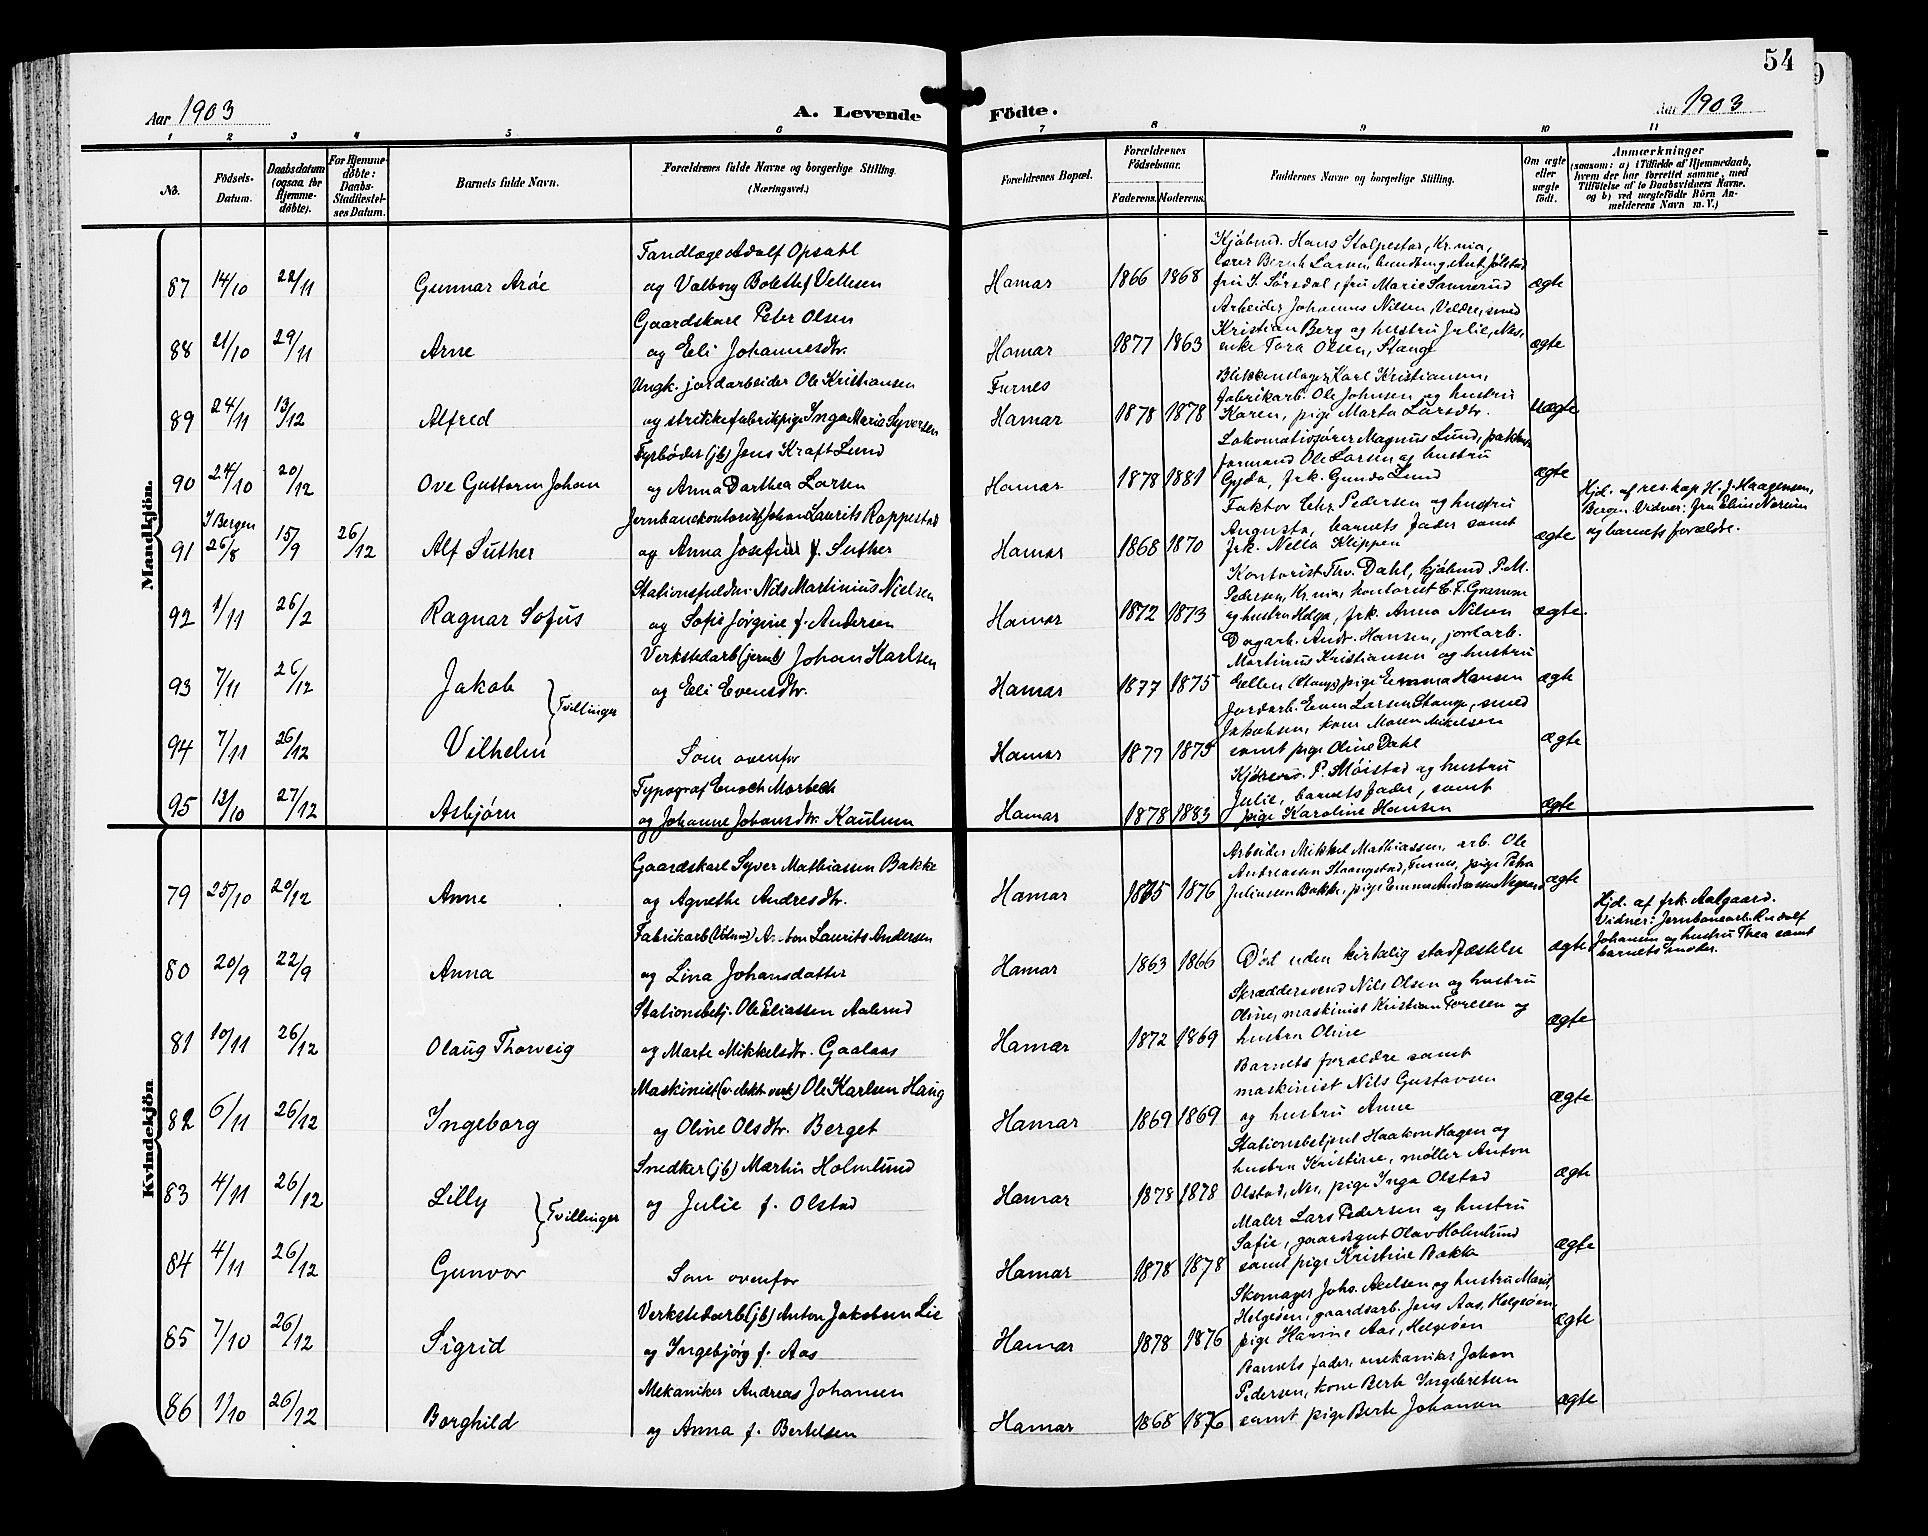 54
Aar 1903
A. Levende Födte.
Aar 1903
1 2 3 4 5 6 7 8 9 10 11
No.
Födsels-Datum.
Daabsdatum (ogsaa for Hjemme-döbte).
For Hjemme-döbte: Daabs-Stadfæstel-ses Datum.
Barnets fulde Navn.
Forældrenes fulde Navne og borgerlige Stilling.
(Næringsvei.)
Forældrenes Bopæl.
Forældrenes Födselsaar.
Faderens. Moderens.
Faddernes Navne og borgerlige Stilling.
Om ægte eller uægte födt.
Anmærkninger
(saasom: a) i Tilfælde af Hjemmedaab,
hvem der har forrettet samme, med
Tilföielse af to Daabsvidners Navne,
og b) ved uægtefödte Börn An-
melderens Navn m. V.)
Mandkjön.
87 14/10 22/11 Gunnar Aróe
Tandlæge Adolf Opsahl
og Valborg Bolette f. Vellesen
Hamar 1866 1868
Kjøbmd. Hans Stolpestad, Kr.nia,
lærer Bernh. Larsen, Ant. Jølstad
fru S. Sørsdal, fru Marie Sannerud
ægte
88 21/10 29/11 Arne
Gaardskarl Peter Olsen
og Eli Johannesdtr.
Hamar 1877 1863
Arbeider Johannes Nilsen, Veldre, smed
Kristian Berg og hustru Julie, Næs,
enke Tora Olsen, Stange
ægte
89 24/11 13/12 Alfred
Ungk. jordarbeider Ole Kristiansen
og strikkefabrikpige Inga Maria Syversen
Furnes
Hamar 1878 1878
Blikkenslager Karl Kristiansen,
fabrikarb. Ole Johnsen og hustru
Karen, pige Marta Larsdtr.
uægte
90 24/10 20/12 Ove Guttorm Johan
Fyrbøder (jb) Jens Kraft Lund
og Anna Dorthea Larsen
Hamar 1878 1881
Lokomotivfører Magnus Lund, pakhus
formand Ole Larsen og hustru
Gyda, frk. Gunda Lund
ægte
91 I Bergen 26/8 15/9 26/12 Alf Suther
Jernbanekontorist Johan Laurits Roppestad
og Anna Josefine f. Suther
Hamar 1868 1870
Faktor Chr. Pedersen og hustru
Augusta, barnets fader samt
frk. Nella Klippen
ægte
Hjd. af res. kap. H. J. Haagensen,
Bergen. Vidner: fru Elin Narum
og barnets forældre.
92 1/11 26/2 Ragnar Sofus
Stationsfuldm. Nils Martinius Nielsen
og Sofie Jørgine f. Andersen
Hamar 1872 1873
Kontorist Thv. Dahl, kjøbmd P. M.
Pedersen, Kr.nia, kontorist C. F. Gramm
og hustru Helga, frk. Anna Nilsen
ægte.
93 7/11 26/12 Jakob
Verkstedarb (jernb) Johan Karlsen
og Eli Evensdtr.
Hamar 1877 1875
Dagarb. Andr. Hansen, jordarb.
Martinus Kristiansen og hustru
Ellen (Stange) pige Emma Hansen
ægte
Tvillinger
94 7/11 26/12 Vilhelm
Som ovenfor
Hamar 1877 1875
Jordarb. Even Larsen Stange, smed
Jakobsen, kone Maren Mikelsen
samt pige Oline Dahl
ægte
95 13/10 27/12 Asbjørn
Typograf Enoch Morbech
og Johanne Johansdtr. Kaulum
Hamar 1878 1883
Kjøresvd. P. Møistad og hustru
Julie, barnets fader, samt
pige Karoline Hansen
ægte
Kvindekjön
79 25/10 20/12 Anne
Gaardskarl Syver Mathiassen Bakke
og Agnethe Andresdtr.
Hamar 1865 1876
Arbeider Mikkel Mathiassen, arb. Ole
Andreasen Staangstad, Furnes, pige Petra
Juliussen Bakke, pige Emma Andreassen
ægte
80 20/9 22/9 Anna
Fabrikarb. Anton Laurits Andersen
og Lina Johansdatter
Hamar 1863 1866
Død uden kirkelig stadfæstelse
ægte
Hjd. af frk. Aalgaard.
Vidner: Jernbanearb. Rudolf
Johansen og hustru Thea samt
barnets moder.
81 10/11 26/12 Olaug Thorveig
Stationsbetj. Ole Eliassen Aalerud
og Marte Mikkelsdtr. Gaalaas
Hamar 1872 1869
Skræddersvend Nils Olsen og hustru
Oline, maskinist Kristian Toresen og
hustru Oline
ægte
82 6/11 26/12 Ingeborg
Maskinist (v. elekt. verk) Ole Karlsen Haug
og Oline Olsdtr. Berget
Hamar 1869 1869
Barnets forældre samt
maskinist Nils Gustavsen
og hustru Anne
ægte
83 4/11 26/12 Lilly
Snedker (jb) Martin Holmlund
og Julie f. Olstad
Hamar 1878 1878
Stationsbetjent Haakon Hagen og
hustru Kristine, møller Anton
Olstad, Næs, pige Inga Olstad
ægte
Tvillinger
84 4/11 26/12 Gunvor
Som ovenfor
Hamar 1878 1878
Maler Lars Pedersen og hustru
Sofie, gaardsgut Olav Holmlund
samt pige Kristine Bakke
ægte
85 7/10 26/12 Sigrid
Verkstedarb (jb) Anton Jakobsen Lie
og Ingebjørg f. Aas
Hamar 1878 1876
Skomager Johs. Axelsen og hustru Marit,
Helgøen, gaardsarb. Jens Aas, Helgøen,
pige Hanine Aas, Helgøen
ægte
86 1/10 26/12 Borghild
Mekaniker Andreas Johansen
og Anna f. Bertelsen
Hamar 1868 1876
Barnets fader, mekaniker Johan
Pedersen, kone Berte Ingebretsen
samt pige Berte Johansen
ægte